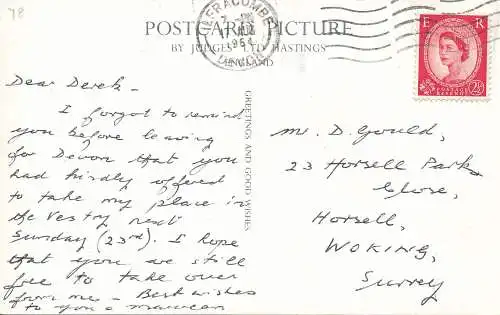 78
POSTCARD PICTURE
BY JUDGES LTD HASTINGS
ENGLAND
ILFRACOMBE
DEVON
E R
POSTAGE
REVENUE
2½
GREETINGS AND GOOD WISHES
Dear Derek -
I forgot to remind
you before leaving
for Devon that you
had kindly offered
to take my place in
the Vestry next
Sunday (23rd). I hope
that you are still
free to take over
from me - Best wishes
to you &
Mr. D. Gould,
23 Horsell Park
Close,
Horsell,
WOKING,
Surrey